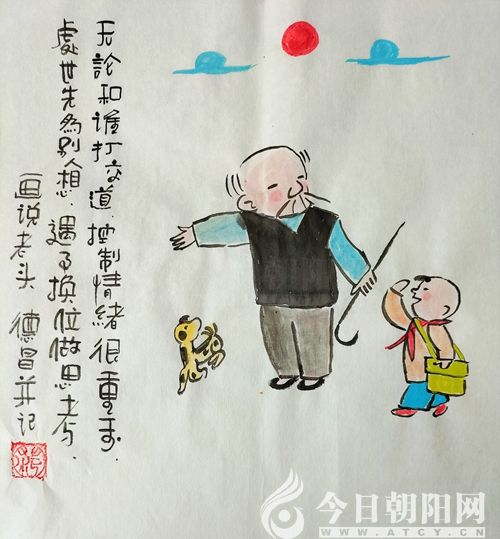 无論和誰打交道.控制情緒很重要.
處世先為别人想.遇事换位做思考.
画说老头 德昌并记
今日朝阳网
WWW.ATCY.CN